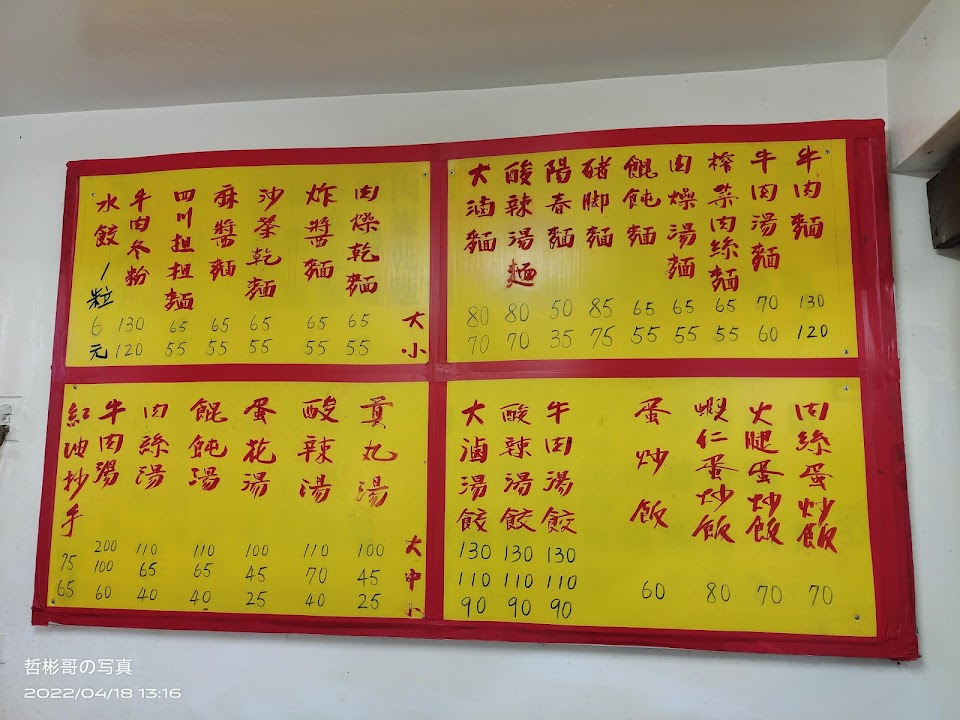 牛肉麵 130 120
牛肉湯麵 70 60
榨菜肉絲麵 65 55
肉燥湯麵 65 55
餛飩麵 65 55
豬脚麵 85 75
陽春麵 50 35
酸辣湯麵 80 70
大滷麵 80 70
大 小
肉燥乾麵 65 55
炸醬麵 65 55
沙茶乾麵 65 55
麻醬麵 65 55
四川担担麵 65 55
牛肉冬粉 130 120
水餃 1粒 6元
肉絲蛋炒飯 70
火腿蛋炒飯 70
蝦仁蛋炒飯 80
蛋炒飯 60
牛肉湯餃 130 110 90
酸辣湯餃 130 110 90
大滷湯餃 130 110 90
大 中 小
貢丸湯 100 45 25
酸辣湯 110 70 40
蛋花湯 100 45 25
餛飩湯 110 65 40
肉絲湯 110 65 40
牛肉湯 200 100 60
紅油抄手 75 65
哲彬哥の写真
2022/04/18 13:16